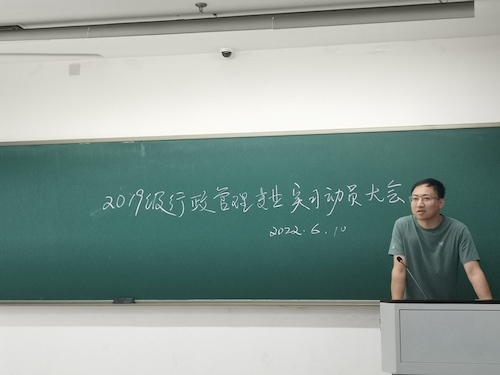 2019级行政管理专业实习动员大会
2022.6.10